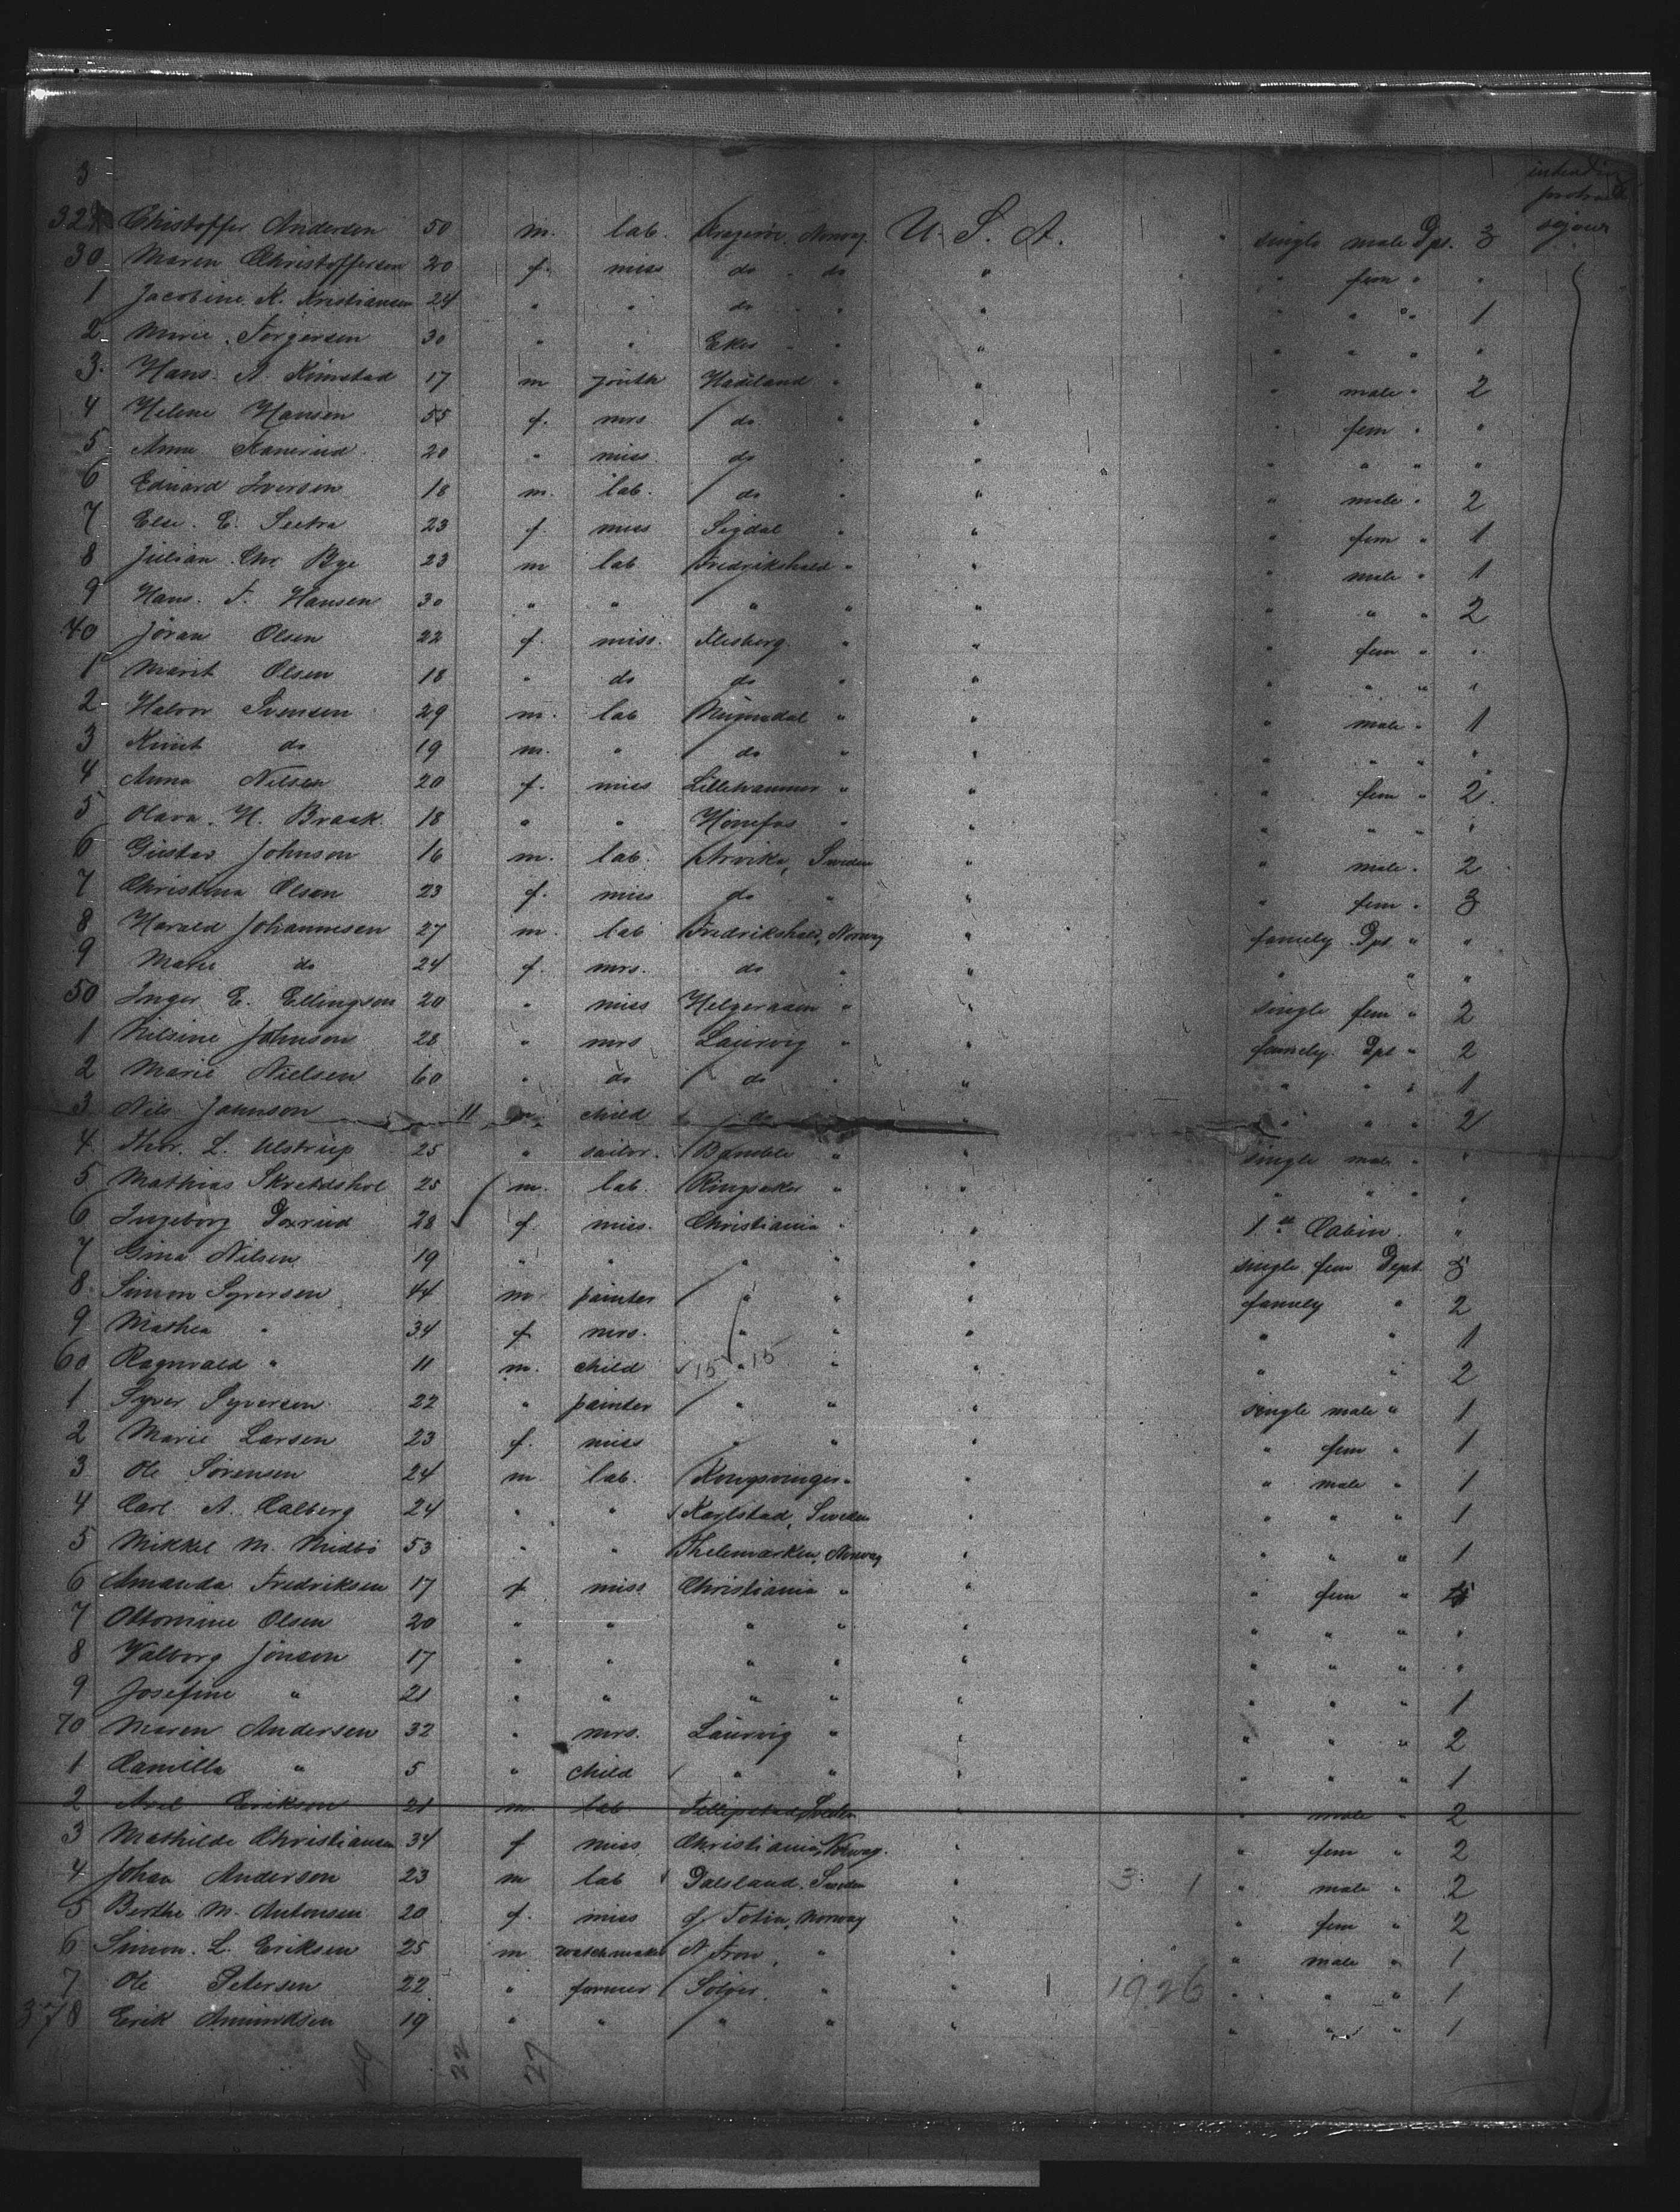 3
intending
protracted
sojour
329 Christoffer Andersen 50 m. lab. Kragerø, Norway U. S. A. single male Dpt. 3
30 Maren Christoffersen 20 f. miss do " do " " fem " "
1 Jacobine K. Kristiansen 24 " " do " " " " " " 1
2 Marie Torgersen 30 " " Eker " " " " " " "
3 Hans A. Kimstad 17 m youth Hadeland " " " male " 2
4 Helene Hansen 55 f. mrs do " " " fem " "
5 Anna 20 " miss. do " " " " " "
6 Edvard Iversen 18 m. lab. do " " " male " 2
7 Else E. Seetra 23 f. miss Sigdal " " " fem " 1
8 Julian Chr. Bye 23 m lab Fredrikshald " " " male " 1
9 Hans F. Hansen 30 " " " " " " " " 2
40 Jöran Olsen 22 f. miss. Flesberg " " " fem " "
1 Marit Olsen 18 " do do " " " " " "
2 Halvor Svensen 29 m. lab Numedal " " " male " 1
3 Knut do 19 m. " do " " " " " "
4 Anna Nilsen 20 f. miss Lillehammer " " " fem " 2
5 Olava H. Braak 18 " " Hönefos " " " " " "
6 Gustav Johnson 16 m. lab. Arvika, Sweden " " male " 2
7 Christina Olson 23 f. miss do " " " fem " 3
8 Harald Johannesen 27 m. lab Fredrikshald, Norway " family Dpt " "
9 Marie do 24 f. mrs. do " " " " "
50 Inger E. Ellingson 20 " miss Helgeraaen " " single fem " 2
1 Nilsine Johnson 28 " mrs Laurvig " " family Dpt " 2
2 Marie Nielsen 60 " do do " " " " " 1
3 Nils Johnson 11 m. child do " " " " 2
4 Thor. L. Ulstrup 25 " sailor. Bamble " " single male " "
5 Mathias Skretdshol 25 m. lab. Ringsaker " " " " " "
6 Ingeborg 28 f. miss. Christiania " " 1st Cabin "
7 Gina Nilsen 19 " " " " " single fem Dept. 3
8 Simon Syversen 44 m painter " " " family " 2
9 Mathea " 34 f mrs. " " " " " 1
60 Ragnvald " 11 m. child 15 " 15 " " " 2
1 Syver Syversen 22 " painter " " " single male " 1
2 Marie Larsen 23 f. miss " " " " fem " 1
3 Ole Sörensen 24 m lab. Kongsvinger " " " male " 1
4 Carl A. Calberg 24 " " Karlstad, Sweden " " " " 1
5 Mikkel M. Midbö 53 " " Thelemarken, Norway " " " " 1
6 Amanda Fredriksen 17 f. miss Christiania " " " fem "
7 Ottomine Olsen 20 " " " " " " " " "
8 Valborg Jonson 17 " " " " " " " " "
9 Josefine " 21 " " " " " " " " 1
70 Maren Andersen 32 " mrs. Laurvig " " " " " 2
1 Camilla " 5 " child " " " " " " 1
2 Axel Erikson 21 m lab Fillipstad, Sweden " " male " 2
3 Mathilde Christiansen 34 f miss Christiania, Norway. " " fem " 2
4 Johan Anderson 23 m lab Dalsland, Sweden " 3 1 " male " 2
5 Berthe M. Antonsen 20 f. miss Toten, Norway " " fem " 2
6 Simon. L. Eriksen 25 m watchmaker N. Fron, " " male " 1
7 Ole Petersen 22 " farmer Solör. " " 1 1926 " " " 1
378 Erik Amundsen 19 " " " " " " " " 1
49 22 27